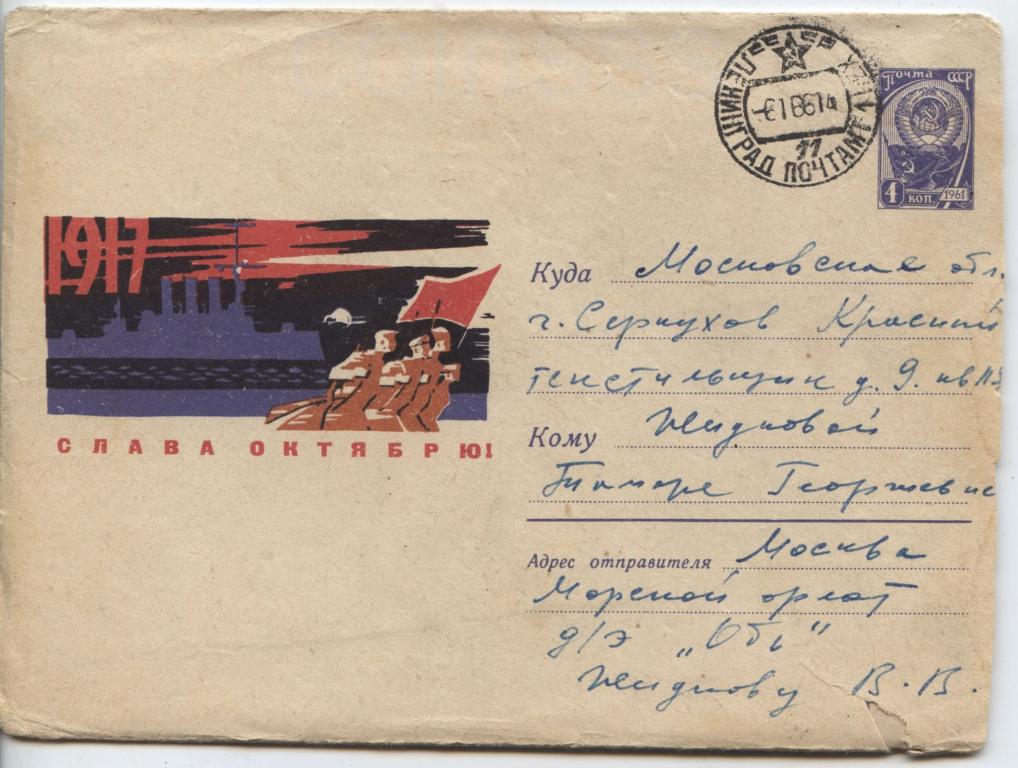 ЛЕНИНГРАД ПОЧТАМТ
11
Почта СССР
4 коп. 1961
1917
СЛАВА ОКТЯБРЮ!
Куда Московская обл.
г. Серпухов Красный
текстильщик д. 9. кв
Кому Жидковой
Тамаре Георгиевне
Адрес отправителя Москва
Морской флот
д/э „Обь"
Жидкову В. В.